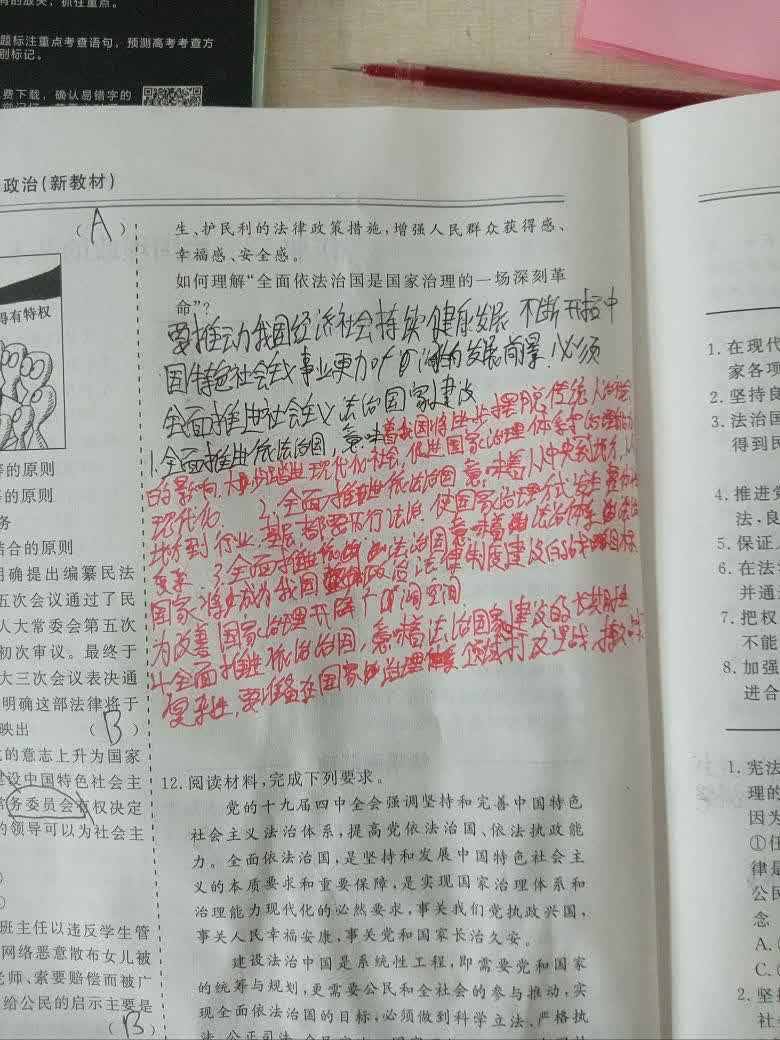 有的放矢，抓住重点。
题标注重点考查语句，预测高考考查方
别标记。
费下载，确认易错字的
政治(新教材)
(A)
得有特权
等的原则
等的原则
务
结合的原则
明确提出编纂民法
五次会议通过了民
人大常委会第五次
初次审议。最终于
大三次会议表决通
明确这部法律将于
映出 (B)
的意志上升为国家
建设中国特色社会主
常务委员会有权决定
的领导可以为社会主
班主任以违反学生管
网络恶意散布女儿被
老师、索要赔偿而被广
给公民的启示主要是
(B)
生、护民利的法律政策措施,增强人民群众获得感、
幸福感、安全感。
如何理解“全面依法治国是国家治理的一场深刻革
命”?
要推动我国经济社会持续健康发展 不断开拓中
国特色社会主义事业更加广阔的发展前景,必须
全面推进社会主义法治国家建设
1.全面推进依法治国,意味着我国将进步摆脱传统人治
的影响,大步踏进现代化社会,促进国家治理体系和治理能力
现代化. 2.全面推进依法治国意味着从中央到地方,从
地方到行业、基层,都要厉行法治,使国家治理方式发生
变革 3.全面推进依法治国意味着由法治体系
国家将成为我国政治法律制度建设的战略目标
为改善国家治理开辟广阔空间
4.全面推进依法治国,意味着法治国家建设的长期性
复杂性,要准备在国家治理领域打攻坚战,持久战
12.阅读材料,完成下列要求。
党的十九届四中全会强调坚持和完善中国特色
社会主义法治体系,提高党依法治国、依法执政能
力。全面依法治国,是坚持和发展中国特色社会主
义的本质要求和重要保障,是实现国家治理体系和
治理能力现代化的必然要求,事关我们党执政兴国,
事关人民幸福安康,事关党和国家长治久安。
建设法治中国是系统性工程,即需要党和国家
的统筹与规划,更需要公民和全社会的参与推动,实
现全面依法治国的目标,必须做到科学立法、严格执
法、公正司法、全民守法
1.在现代
家各项
2.坚持良
3.法治国
得到民
4.推进党
法,良
5.保证
6.在法治
并通
7.把权
不能
8.加强
进合
1.宪法
理的
因为
①任
律是
公民
念
A.
C.
2.坚持
社